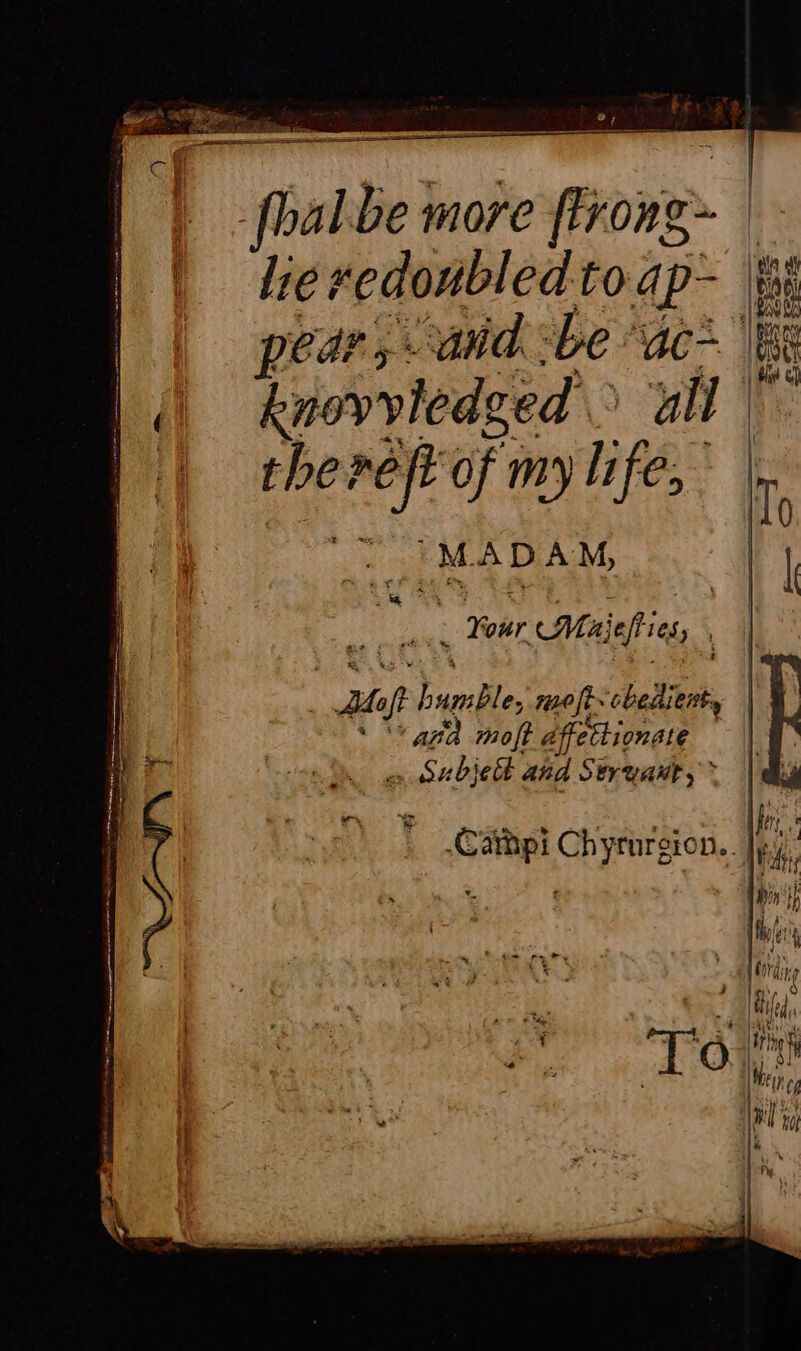 ſhal be more ſtrong-
lie redoubled to ap-
pear, and be ac-
knovvledged all
the reſt of my life,
MADAM,
Your Majeſties,
Moſt humble, moſt obedient,
and moſt affectionate
Subject and Servant,
Campi Chyrurgion.
To